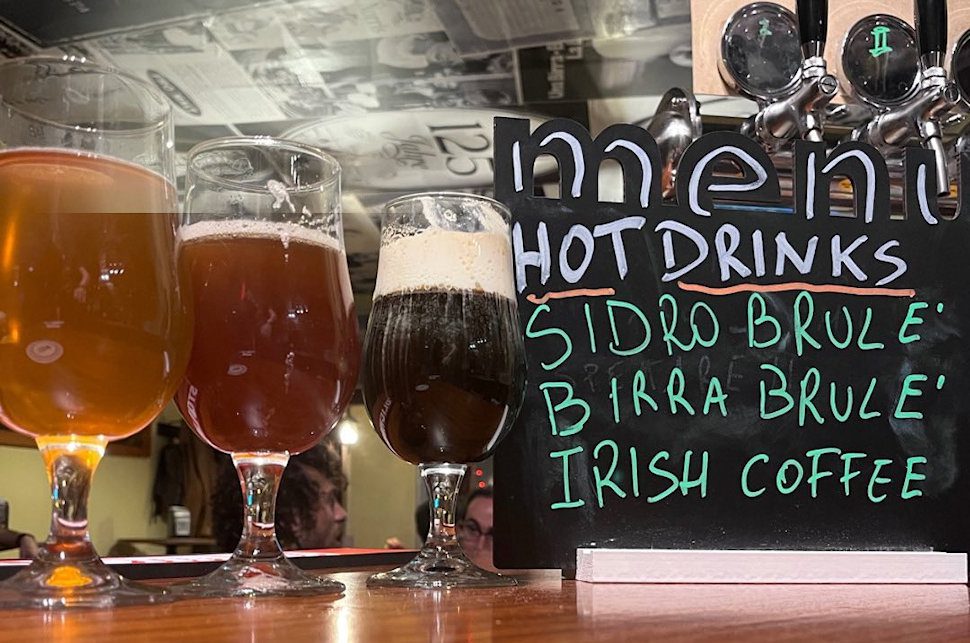 II
125
menu
HOT DRINKS
SIDRO BRULE'
BIRRA BRULE'
IRISH COFFEE